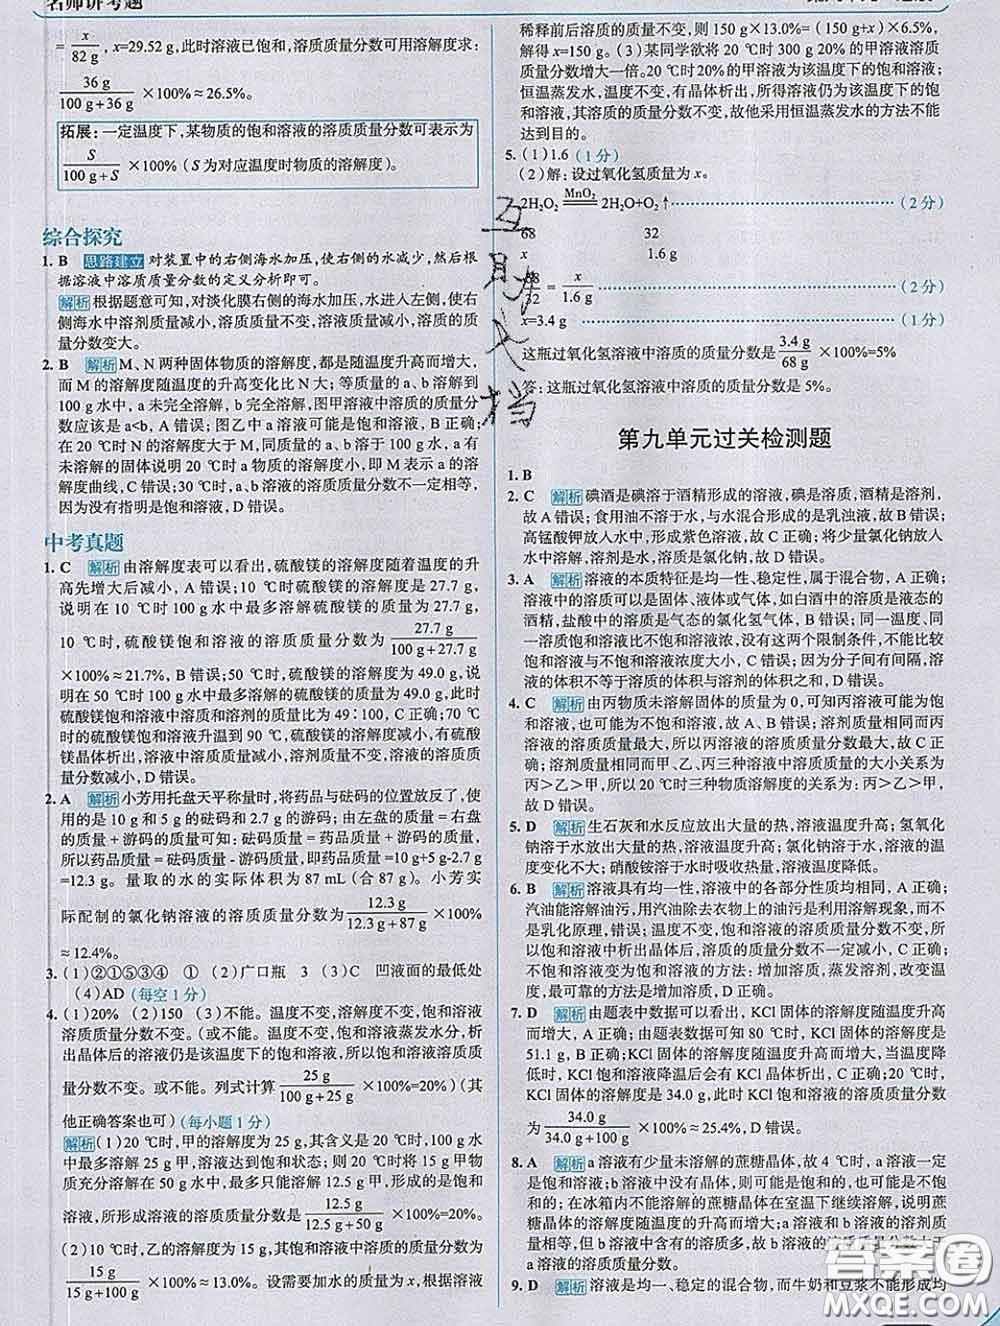 名师讲考题
= x/82 g，x=29.52 g，此时溶液已饱和，溶质质量分数可用溶解度求：
36 g/(100 g+36 g) ×100%≈26.5%。
拓展：一定温度下，某物质的饱和溶液的溶质质量分数可表示为
S/(100 g+S) ×100%（S为对应温度时物质的溶解度）。
综合探究
1. B 思路建立 对装置中的右侧海水加压，使右侧的水减少，然后根
据溶液中溶质质量分数的定义分析即可。
解析 根据题意可知，对淡化膜右侧的海水加压，水进入左侧，使右
侧海水中溶剂质量减小，溶质质量不变，溶液质量减小，溶质的质
量分数变大。
2. B 解析 M、N两种固体物质的溶解度，都是随温度升高而增大，
而M的溶解度随温度的升高变化比N大；等质量的a、b溶解到
100 g水中，a未完全溶解，b完全溶解，图甲溶液中溶质的质量分
数应该是a<b，A错误；图乙中a溶液可能是饱和溶液，B正确；
在20 ℃时N的溶解度大于M，同质量的a、b溶于100 g水，a有
未溶解的固体说明20 ℃时a物质的溶解度小，即M表示a的溶
解度曲线，C错误；30 ℃时，a、b溶液的溶质质量分数不一定相等，
因为没有指明是饱和溶液，D错误。
中考真题
1. C 解析 由溶解度表可以看出，硫酸镁的溶解度随着温度的升
高先增大后减小，A错误；10 ℃时硫酸镁的溶解度是27.7 g，
说明在10 ℃时100 g水中最多溶解硫酸镁的质量为27.7 g，
10 ℃时，硫酸镁饱和溶液的溶质质量分数为 27.7 g/(100 g+27.7 g)
×100%≈21.7%，B错误；50 ℃时，硫酸镁的溶解度为49.0 g，说
明在50 ℃时100 g水中最多溶解的硫酸镁的质量为49.0 g，此时
硫酸镁饱和溶液中溶质和溶剂的质量比为49∶100，C正确；70 ℃
时硫酸镁饱和溶液升温到90 ℃，硫酸镁的溶解度减小，有硫酸
镁晶体析出，溶液中溶质质量减小，溶剂质量不变，溶液的溶质质
量分数减小，D错误。
2. A 解析 小芳用托盘天平称量时，将药品与砝码的位置放反了，使
用的是10 g和5 g的砝码和2.7 g的游码；由左盘的质量＝右盘
的质量＋游码的质量可知：砝码质量＝药品质量＋游码的质量，
所以药品质量＝砝码质量-游码质量，即药品质量=10 g+5 g-2.7 g
=12.3 g。量取的水的实际体积为87 mL（合87 g）。小芳实
际配制的氯化钠溶液的溶质质量分数为 12.3 g/(12.3 g+87 g) ×100%
≈12.4%。
3.（1）②①⑤③④ ①（2）广口瓶 3（3）C 凹液面的最低处
（4）AD（每空1分）
4.（1）20%（2）150（3）不能。温度不变，溶解度不变，饱和溶液
溶质质量分数不变。（或不能。温度不变，饱和溶液蒸发水分，析
出晶体后的溶液仍是该温度下的饱和溶液，所以饱和溶液溶质质
量分数不变。或不能。列式计算 25 g/(100 g+25 g) ×100%=20%）（其
他正确答案也可）（每小题1分）
解析（1）20 ℃时，甲的溶解度为25 g，其含义是20 ℃时，100 g水
中最多溶解25 g甲，溶液达到饱和状态；则20 ℃时将15 g甲物
质充分溶解在50 g水中，最多只能溶解12.5 g甲，形成的是饱和
溶液，所形成溶液的溶质质量分数是 12.5 g/(12.5 g+50 g) ×100%=20%。
（2）10 ℃时，乙的溶解度为15 g，其饱和溶液中溶质的质量分数为
15 g/(15 g+100 g) ×100%≈13.0%。设需要加水的质量为x，根据溶液
稀释前后溶质的质量不变，则150 g×13.0%=（150 g+x）×6.5%，
解得x=150 g。（3）某同学欲将20 ℃时300 g 20%的甲溶液溶质
质量分数增大一倍。20 ℃时20%的甲溶液为该温度下的饱和溶液；
恒温蒸发水，温度不变，有晶体析出，所得溶液仍为该温度下的饱
和溶液，其溶质质量分数不变，故他采用恒温蒸发水的方法不能
达到目的。
5.（1）1.6（1分）
（2）解：设过氧化氢质量为x。
2H₂O₂ MnO₂ 2H₂O+O₂↑ （2分）
68 32
x 1.6 g
68/32 = x/1.6 g （2分）
x=3.4 g （1分）
这瓶过氧化氢溶液中溶质的质量分数是 3.4 g/68 g ×100%=5%
答：这瓶过氧化氢溶液中溶质的质量分数是5%。
第九单元过关检测题
1. B
2. C 解析 碘酒是碘溶于酒精形成的溶液，碘是溶质，酒精是溶剂，
故A错误；食用油不溶于水，与水混合形成的是乳浊液，故B错误；
高锰酸钾放入水中，形成紫色溶液，故C正确；将少量氯化钠放入
水中溶解，溶剂是水，溶质是氯化钠，故D错误。
3. A 解析 溶液的本质特征是均一性、稳定性，属于混合物，A正确；
溶液中的溶质可以是固体、液体或气体，如白酒中的溶质是液态的
酒精，盐酸中的溶质是气态的氯化氢气体，B错误；同一温度、同
一溶质饱和溶液比不饱和溶液浓，没有这两个限制条件，不能比较
饱和溶液与不饱和溶液浓度大小，C错误；因为分子间有间隔，溶
液的体积不等于溶质的体积与溶剂的体积之和，D错误。
4. C 解析 由丙物质未溶解固体的质量为0，可知丙溶液可能为饱
和溶液，也可能为不饱和溶液，故A、B错误；溶剂质量相同而丙
溶液的溶质质量最大，所以丙溶液的溶质质量分数最大，故C正
确；溶剂质量相同而甲、乙、丙三种溶液中溶质质量的大小关系为
丙>乙>甲，所以20 ℃时三种物质溶解度的关系为：丙>乙>甲，
故D错误。
5. D 解析 生石灰和水反应放出大量的热，溶液温度升高；氢氧化
钠溶于水放出大量的热，溶液温度升高；氯化钠溶于水，溶液的温
度变化不大；硝酸铵溶于水时吸收热量，溶液温度降低。
6. B 解析 溶液具有均一性，溶液中的各部分性质均相同，A正确；
汽油能溶解油污，用汽油除去衣物上的油污是利用溶解现象，而不
是乳化原理，B错误；温度不变，饱和溶液的溶质质量分数不变，所
以饱和溶液中析出晶体后，溶质的质量分数不一定减小，C正确；
不饱和溶液变为饱和溶液的方法：增加溶质，蒸发溶剂，改变温
度，最可靠的方法是增加溶质，D正确。
7. D 解析 由题表中数据可以看出，KCl固体的溶解度随温度升高
而增大，A正确；由题表数据可知80 ℃时，KCl固体的溶解度是
51.1 g，B正确；KCl固体的溶解度随温度升高而增大，当温度降
低时，KCl固体的饱和溶液降温后会有KCl晶体析出，C正确；20 ℃时
KCl固体的溶解度是34.0 g，此时KCl饱和溶液的溶质质量分数
为 34.0 g/(34.0 g+100 g) ×100%≈25.4%，D错误。
8. A 解析 a溶液有少量未溶解的蔗糖晶体，故4 ℃时，a溶液一定
是饱和溶液；b溶液中没有晶体，则可能是饱和的，也可能是不饱
和的；在冰箱内不能溶解的蔗糖晶体在室温下继续溶解，说明蔗
糖晶体的溶解度随温度的升高而增大；a溶液和b溶液的溶剂质
量相同，但b溶液中含有的溶质多，故b溶液的溶质质量分数大于
a溶液的溶质质量分数。
9. D 解析 溶液是均一、稳定的混合物，而牛奶和豆浆不能形成均
互助文档
答案圈
MXQE.COM